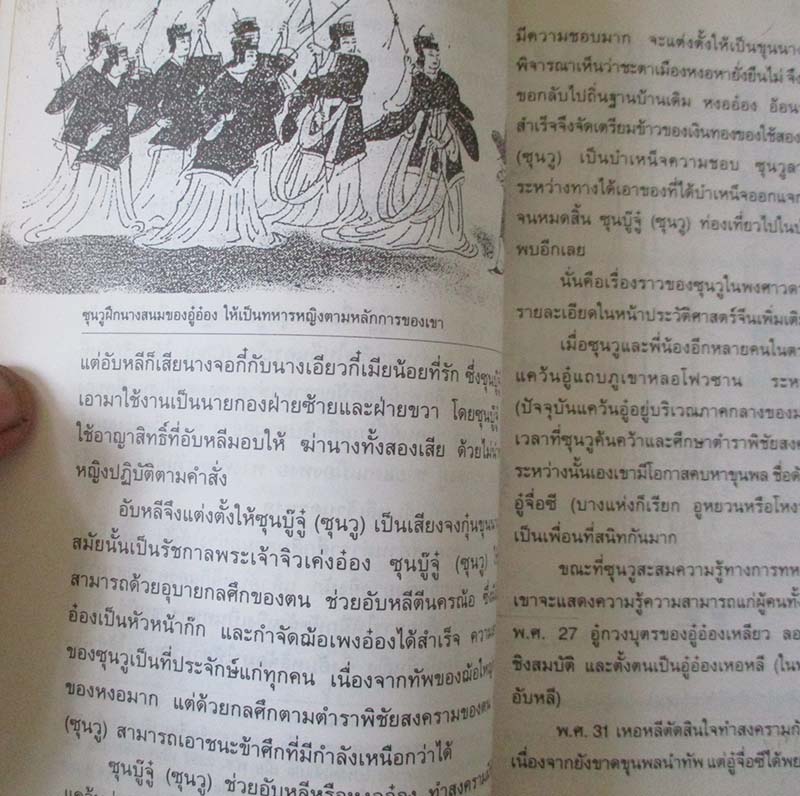 ซุนวูฝึกนางสนมของอู๋อ๋อง ให้เป็นทหารหญิงตามหลักการของเขา
แต่อับหลีก็เสียนางจอกี๋กับนางเอียวกี๋เมียน้อยที่รัก ซึ่งซุนบู๊จู๊
เอามาใช้งานเป็นนายกองฝ่ายซ้ายและฝ่ายขวา โดยซุนบู๊จู๊
ใช้อาญาสิทธิ์ที่อับหลีมอบให้ ฆ่านางทั้งสองเสีย ด้วยไม่นำ
หญิงปฏิบัติตามคำสั่ง
อับหลีจึงแต่งตั้งให้ซุนบู๊จู๊ (ซุนวู) เป็นเสียงจงกุ๋นขุนนาง
สมัยนั้นเป็นรัชกาลพระเจ้าจิวเค่งอ๋อง ซุนบู๊จู๊ (ซุนวู)
สามารถด้วยอุบายกลศึกของตน ช่วยอับหลีตีนครฌ้อ
อ๋องเป็นหัวหน้าก๊ก และกำจัดฌ้อเพงอ๋องได้สำเร็จ
ของซุนวูเป็นที่ประจักษ์แก่ทุกคน เนื่องจากทัพของฌ้อใหญ่
ของหงอมาก แต่ด้วยกลศึกตามตำราพิชัยสงครามของตน
(ซุนวู) สามารถเอาชนะข้าศึกที่มีกำลังเหนือกว่าได้
ซุนบู๊จู๊ (ซุนวู) ช่วยอับหลีหรือหงออ๋อง ทำสงคราม
มีความชอบมาก จะแต่งตั้งให้เป็นขุนนาง
พิจารณาเห็นว่าชะตาเมืองหงอหายั่งยืนไม่ จึง
ขอกลับไปถิ่นฐานบ้านเดิม หงออ๋อง อ้อน
สำเร็จจึงจัดเตรียมข้าวของเงินทองของใช้สอง
(ซุนวู) เป็นบำเหน็จความชอบ ซุนวู
ระหว่างทางได้เอาของที่ได้บำเหน็จออกแจก
จนหมดสิ้น ซุนบู๊จู๊ (ซุนวู) ท่องเที่ยวไปใน
พบอีกเลย
นั่นคือเรื่องราวของซุนวูในพงศาวดา
รายละเอียดในหน้าประวัติศาสตร์จีนเพิ่มเติ
เมื่อซุนวูและพี่น้องอีกหลายคนใน
แคว้นอู๋แถบภูเขาหลอโฟวซาน ระห
(ปัจจุบันแคว้นอู๋อยู่บริเวณภาคกลางของ
เวลาที่ซุนวูค้นคว้าและศึกษาตำราพิชัยสงค
ระหว่างนั้นเองเขามีโอกาสคบหาขุนพล ชื่อ
อู๋จื่อซี (บางแห่งก็เรียก อูหยวนหรือ
เป็นเพื่อนที่สนิทกันมาก
ขณะที่ซุนวูสะสมความรู้ทางการทห
เขาจะแสดงความรู้ความสามารถแก่ผู้คนทั้
พ.ศ. 27 อู๋กวงบุตรของอู๋อ๋องเหลียว ลอ
ชิงสมบัติ และตั้งตนเป็นอู๋อ๋องเหอหลี (ใน
อับหลี)
พ.ศ. 31 เหอหลีตัดสินใจทำสงครามกั
เนื่องจากยังขาดขุนพลนำทัพ แต่อู๋จื่อซีได้พย